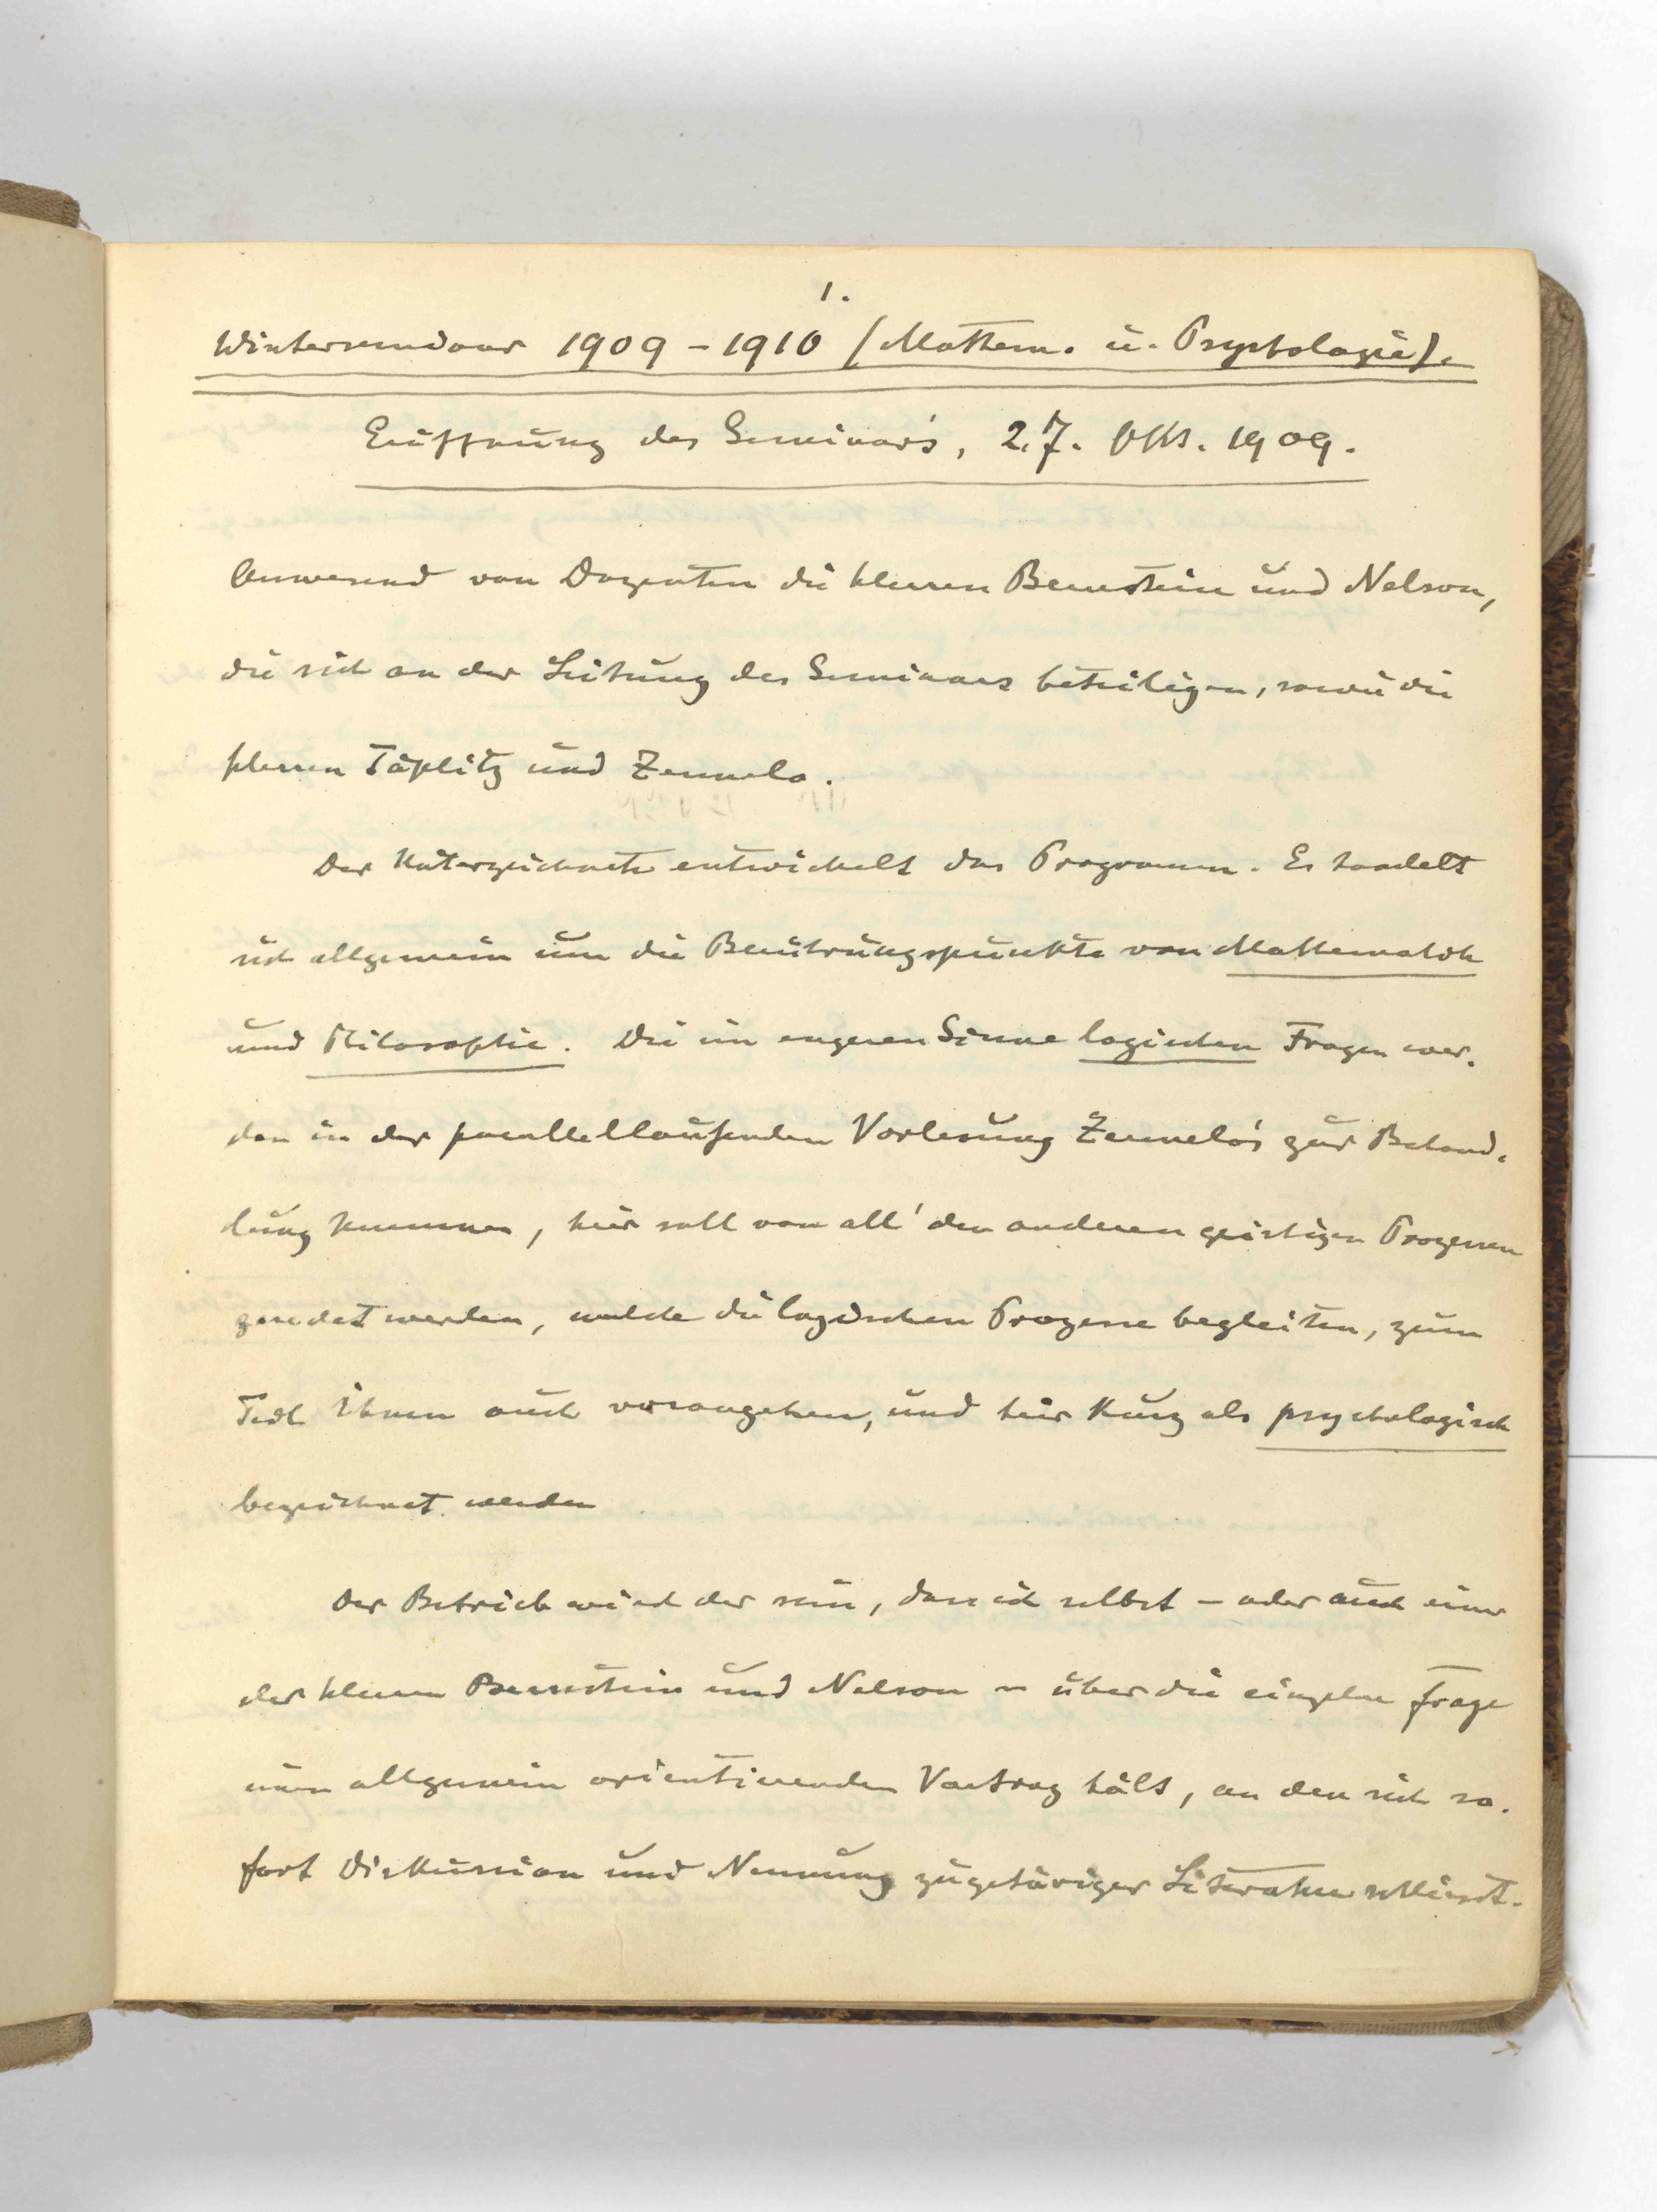 1.
Winterseminar 1909–1910 (Mathem. u. Psychologie).
Eröffnung des Seminar's, 27. Okt. 1909.
Anwesend von Dozenten die Herren Bernstein und Nelson,
die sich an der Leitung des Seminars beteiligen, sowie die
Herren Töplitz und Zermelo.
Der Unterzeichnete entwickelt das Programm. Es handelt
sich allgemein um die Berührungspunkte von Mathematik
und Philosophie. Die im engeren Sinne logischen Fragen wer-
den in der parallellaufenden Vorlesung Zermelo's zur Behand-
lung kommen, hier soll von all' den anderen geistigen Prozessen
geredet werden, welche die logischen Prozesse begleiten, zum
Teil ihnen auch vorangehen, und hier kurz als psychologisch
bezeichnet werden
Der Betrieb wird der sein, dass ich selbst – oder auch einer
der Herren Bernstein und Nelson – über die einzelne Frage
einen allgemein orientierenden Vortrag hält, an den sich so-
fort Diskussion und Nennung zugehöriger Literatur schliesst.